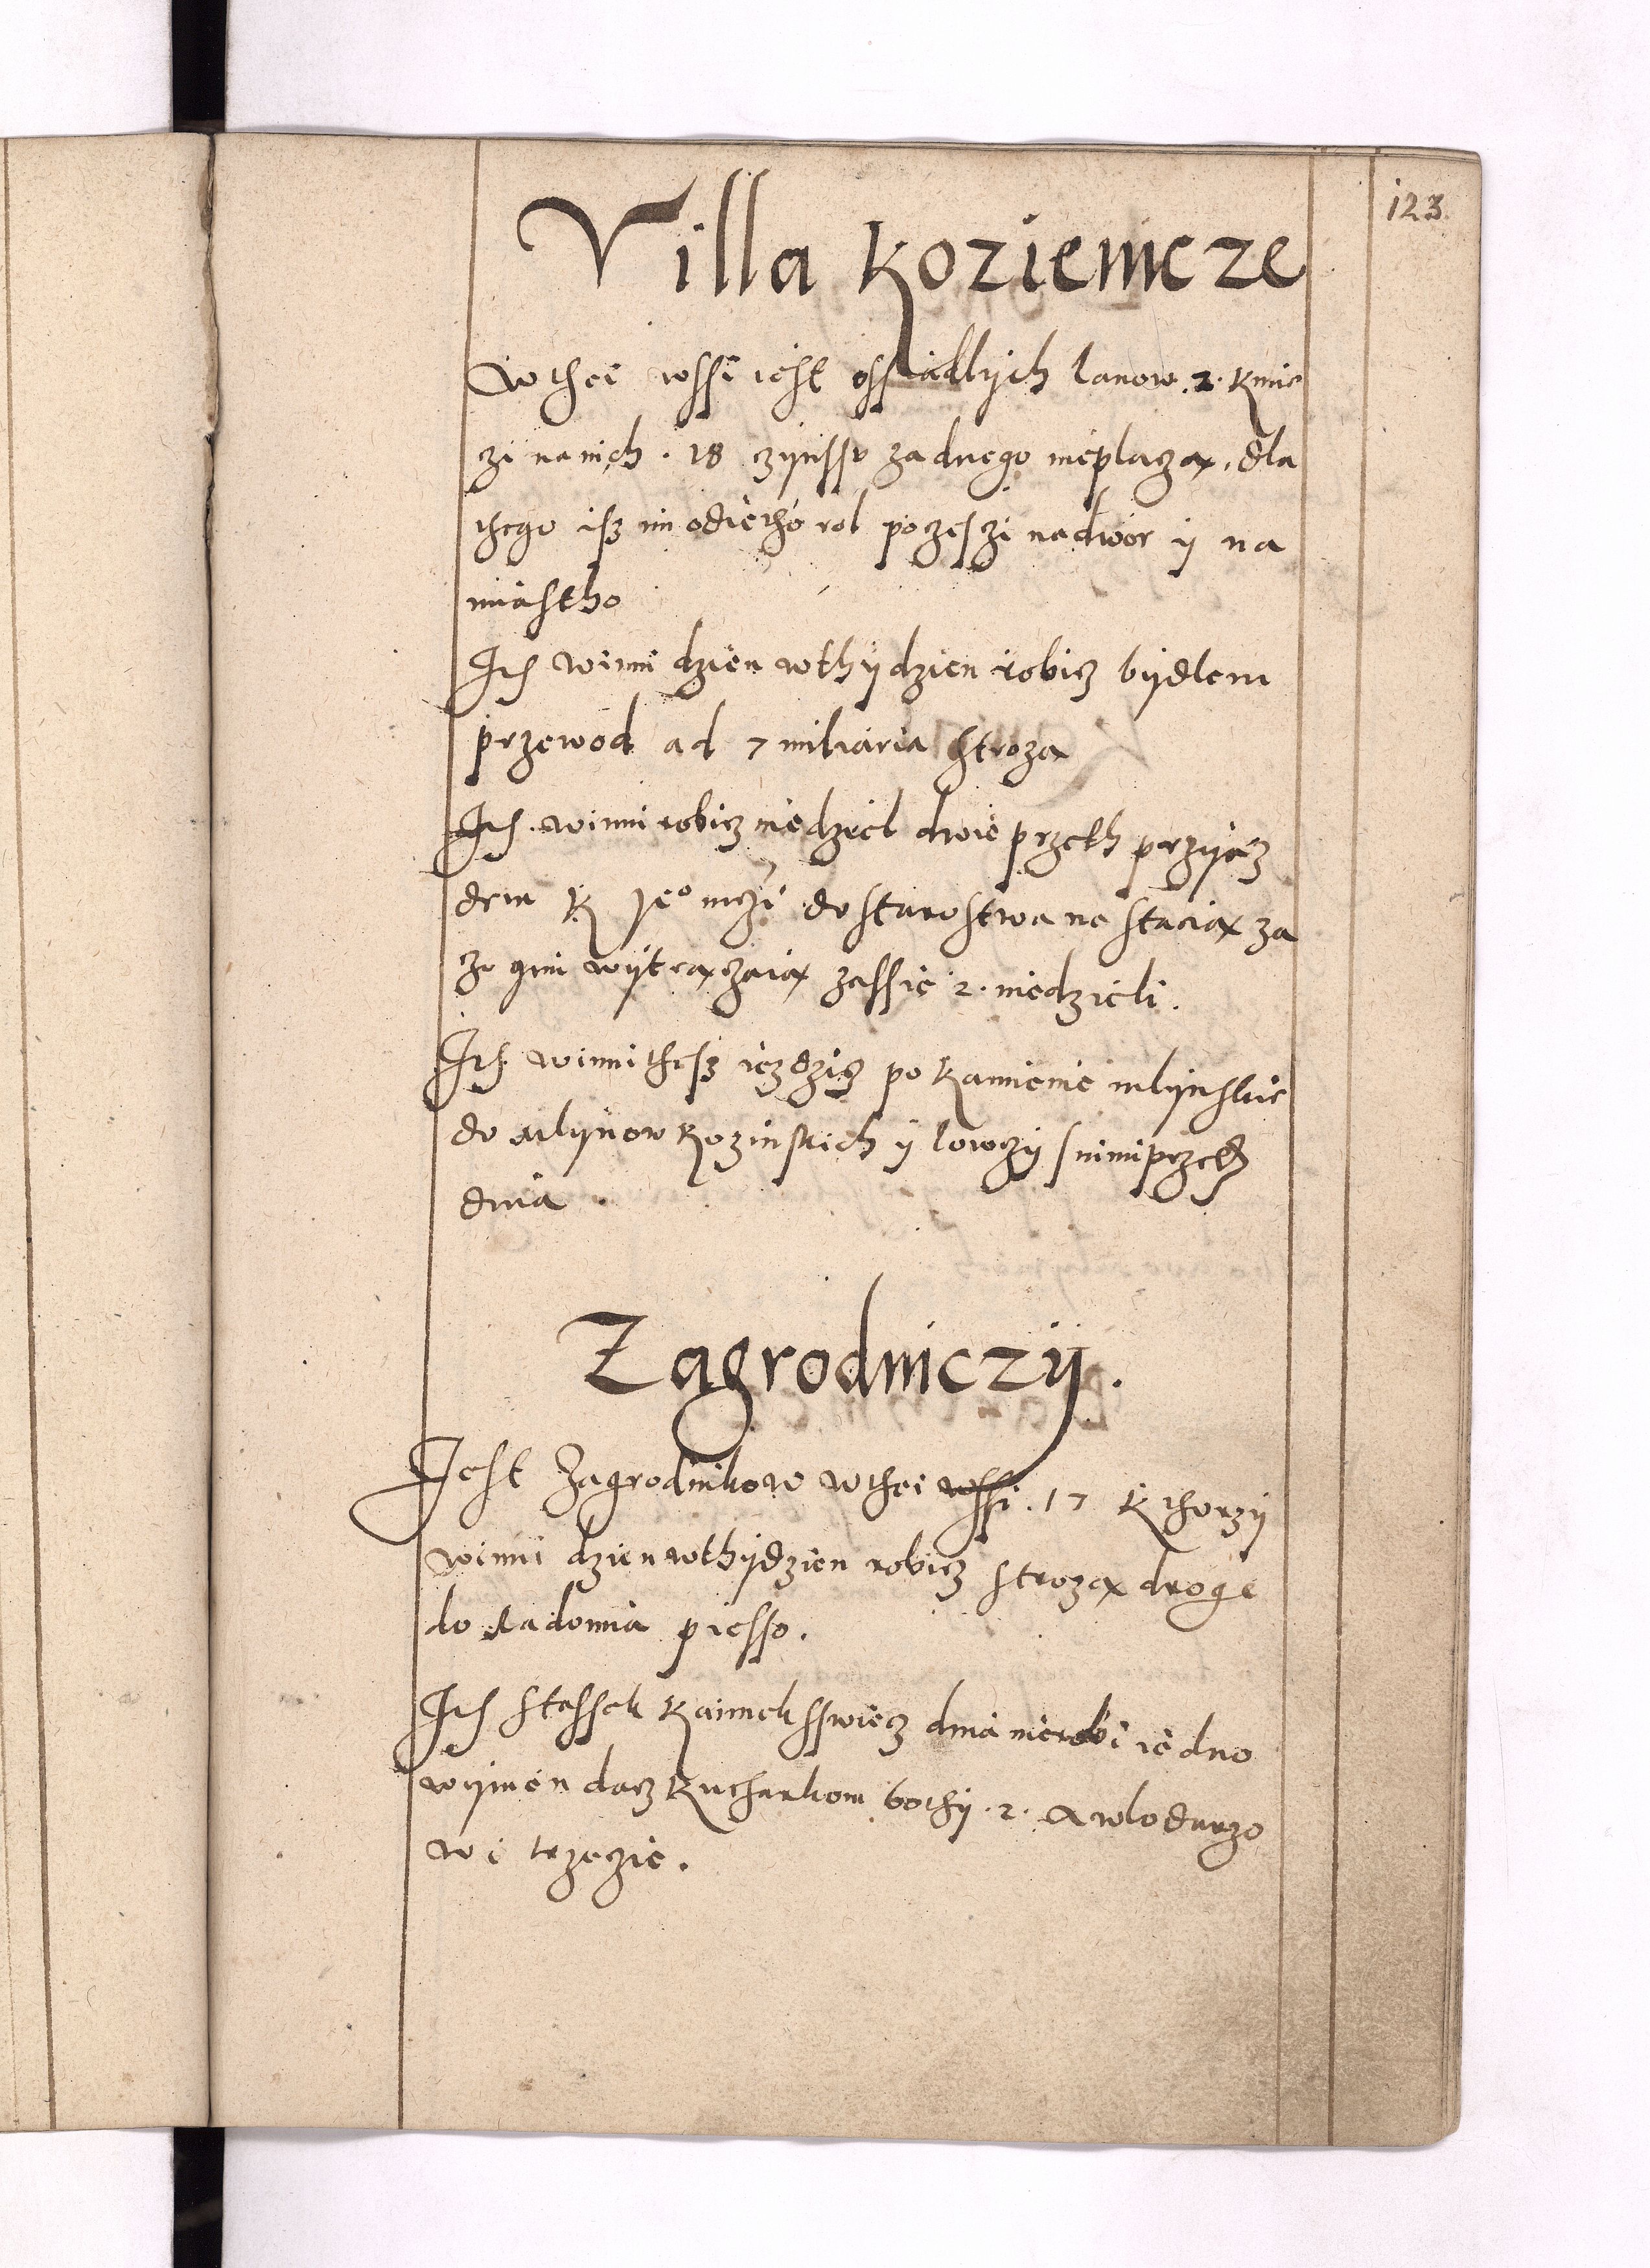 123.
Villa Kozienicze
W thei wssi iest ossiadlÿch lanow .2. Kmie
zi na nich . 18 czÿnssu zadnego nieplaczą, dla
thego isz im odietho rol poczesczi nadwor ÿ na
miastho
Ith winni dzien wthÿdzien robicz bÿdlem
przewod ad 7 miliaria Stroza
Ith. winni robicz niedziel dwie przeth przÿiaz
dem K Je° mczi do starostwa na stacią za
czo gim wÿtrączaią zassie 2. niedzieli.
Ith winni thesz iezdzicz po kamienie mlÿnskie
do mlÿnow kozinskich ÿ lowczÿ s nimi przeth
dnia .
Zagrodniczÿ.
Jest Zagrodnikow wthei wssi . 17 Kthorzÿ
winni dzien wthÿdzien robicz strozą droge
do Radomia piesso.
Ith Stassek dnia nierobi iedno
wÿmen dacz Kucharkom bothÿ .2. A wlodarzo
wi trzecie.